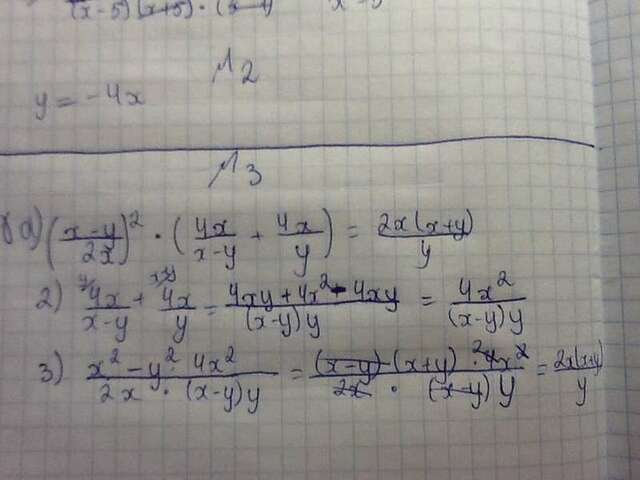 (x-5)(x+5)·(
№2
y = -4x
№3
а) ((x-y)/2x)² · (4x/(x-y) + 4x/y) = 2x(x+y)/y
2) 4x/(x-y) + 4x/y = (4xy + 4x² - 4xy)/((x-y)y) = 4x²/((x-y)y)
3) (x² - y² · 4x²)/(2x · (x-y)y) = ((x-y)·(x+y)·4x²)/(2x · (x-y)y) = 2x(x+y)/y